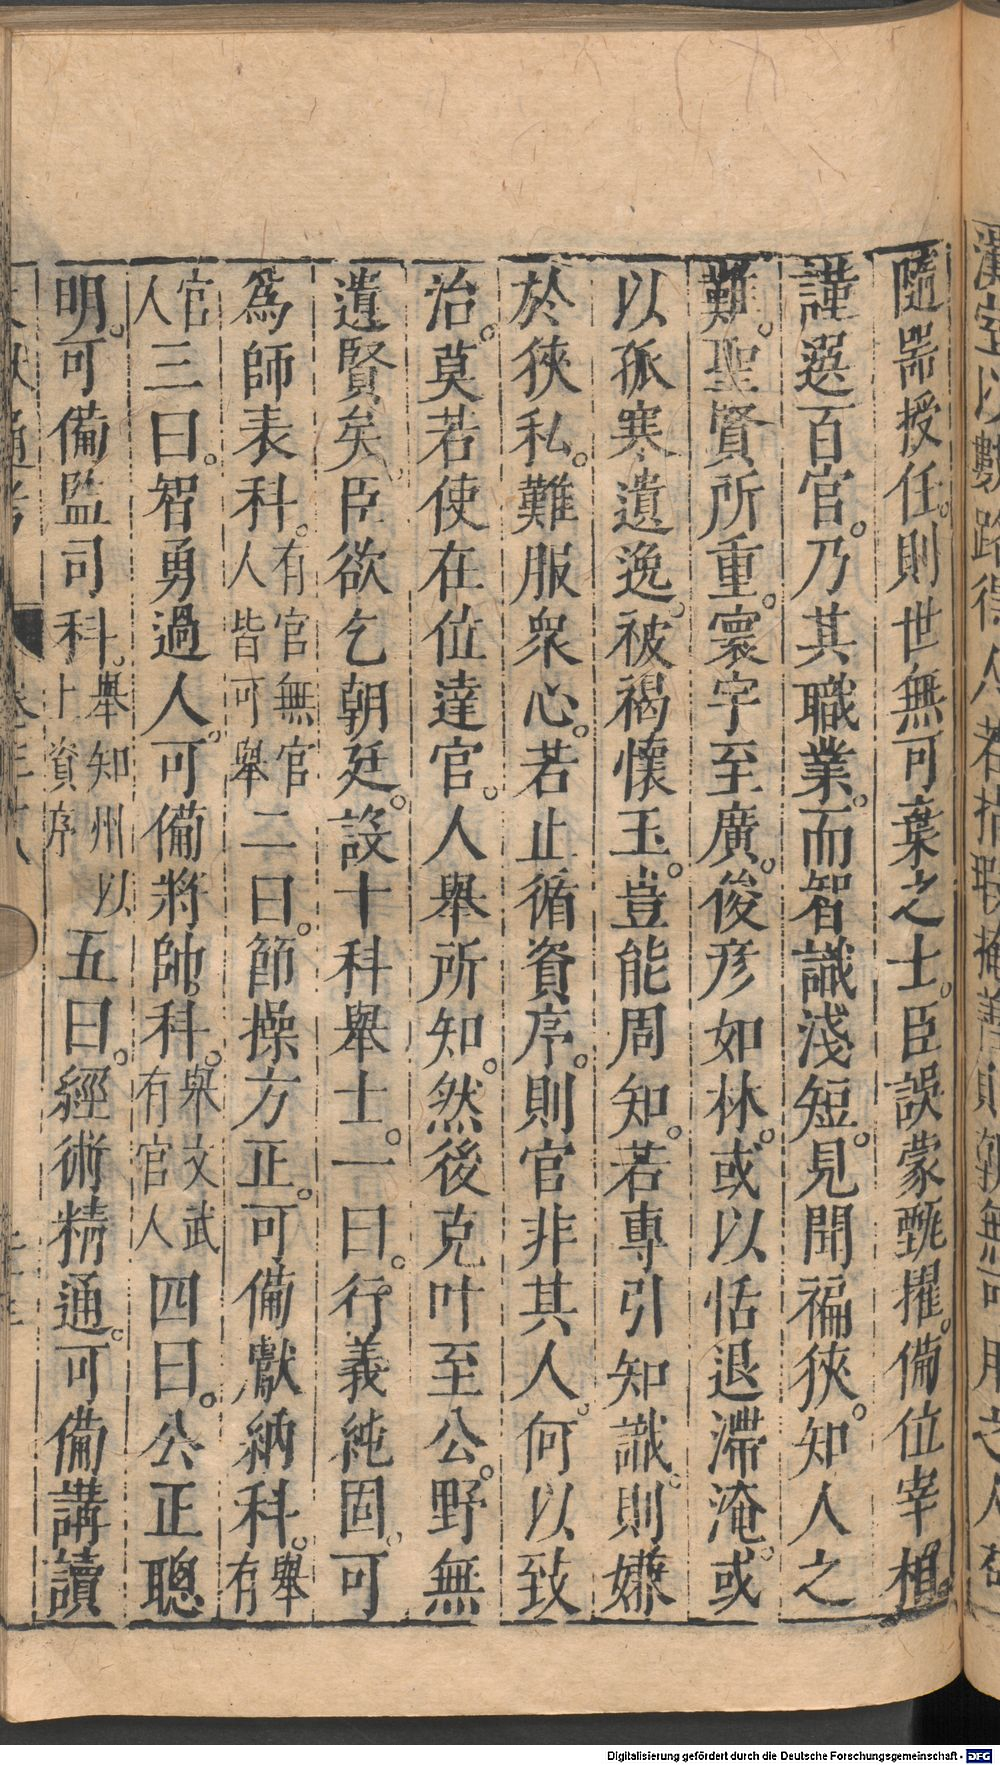 隨器授任。則世無可棄之士。臣誤蒙甄擢。備位宰相。
謹選百官。乃其職業。而智識淺短。見聞褊狹。知人之
難。聖賢所重。寰宇至廣。俊彦如林。或以恬退滯淹。或
以孤寒遺逸。被褐懷玉。豈能周知。若專引知識。則嫌
於狹私。難服衆心。若止循資序。則官非其人。何以致
治。莫若使在位達官。人舉所知。然後克叶至公。野無
遺賢矣。臣欲乞朝廷。設十科舉士。一曰。行義純固。可
為師表科。有官無官人皆可舉二曰。節操方正。可備獻納科。舉有
官人三曰。智勇過人。可備將帥科。舉文武有官人四曰。公正聰
明。可備監司科。舉知州以上資序五曰。經術精通。可備講讀